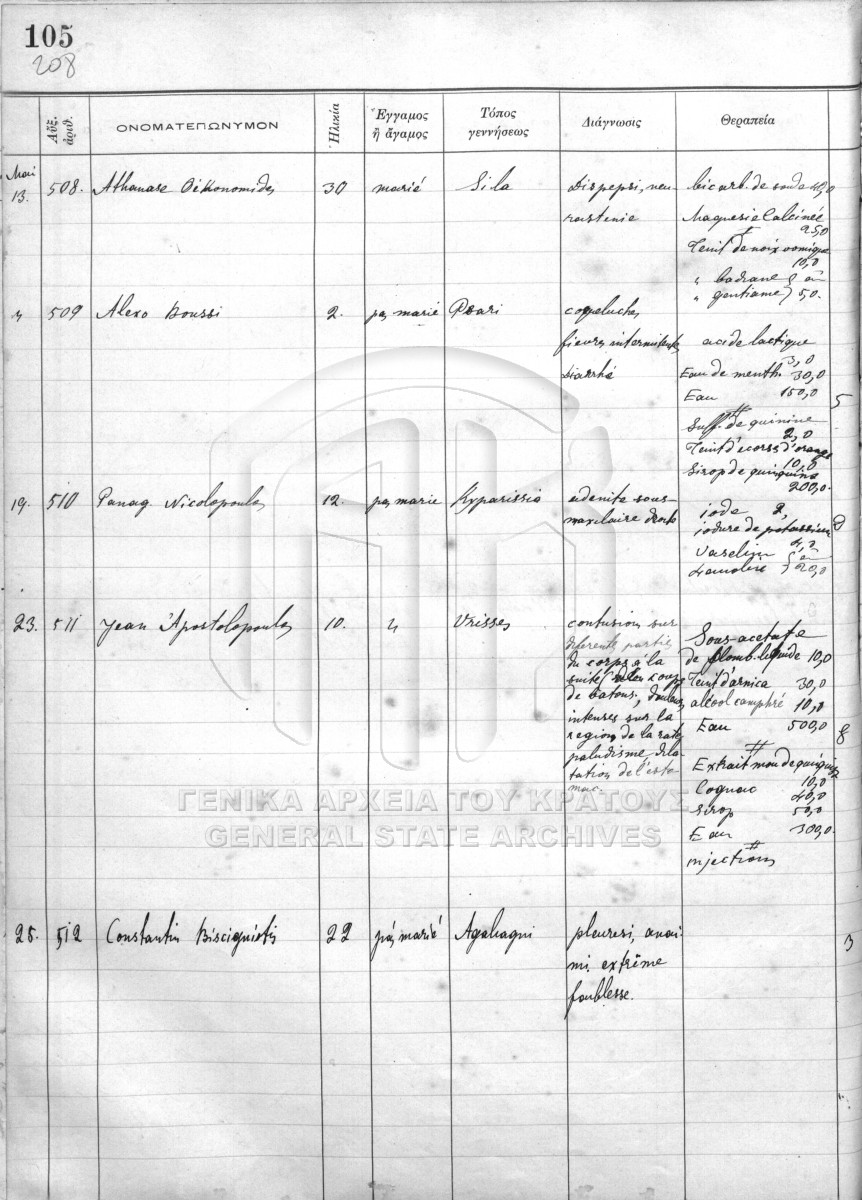 105
208
Αὔξ. ἀριθ.
ΟΝΟΜΑΤΕΠΩΝΥΜΟΝ
Ἡλικία
Ἔγγαμος ἢ ἄγαμος
Τόπος γεννήσεως
Διάγνωσις
Θεραπεία
Mai
13. 508. Athanase Oikonomides 30 marié Sila Dispepsi, neu- bicarb. de soude 40,0
rastenie Magnesie Calcinée
25,0
#
Teint de noix vomique
10,0
" badiane } aa
" gentiane } 5,0.
" 509 Alexo Boussi 2. pas marié Psari coqueluche,
fievres intermitentes acide lactique
3,0
Diarrhé Eau de menth. 30,0
Eau 150,0
5
#
Sulf. de quinine
2,0
Teint d'ecorse d'orange
10,0
Sirop de quinquina
200,0.
19. 510 Panag. Nicolopoulos 12. pas marie Kyparissia adenite sous- iode 2,
maxilaire droite iodure de potassium
Vaselin 4,0
Lanoline } aa 20,0
23. 511 Jean Apostolopoulos 10. " Vrisses contusions sur Sous-acetate
diferentes parties de plomb. liquide 10,0
du corps à la
suite des coups Teint d'arnica 30,0
de batons, douleurs alcool camphré 10,0
intenses sur la Eau 500,0
8
region de la rate #
paludisme dila- Extrait mou de quinquina
10,0
tation de l'esto- Cognac 40,0
mac. Sirop 50,0
Eau 300,0.
#
injections
ΓΕΝΙΚΑ ΑΡΧΕΙΑ ΤΟΥ ΚΡΑΤΟΥΣ
GENERAL STATE ARCHIVES
25. 512 Constantin Bisciniotis 22 pas marié Agaliagni pleuresi, anai-
mi extrême
faublesse.